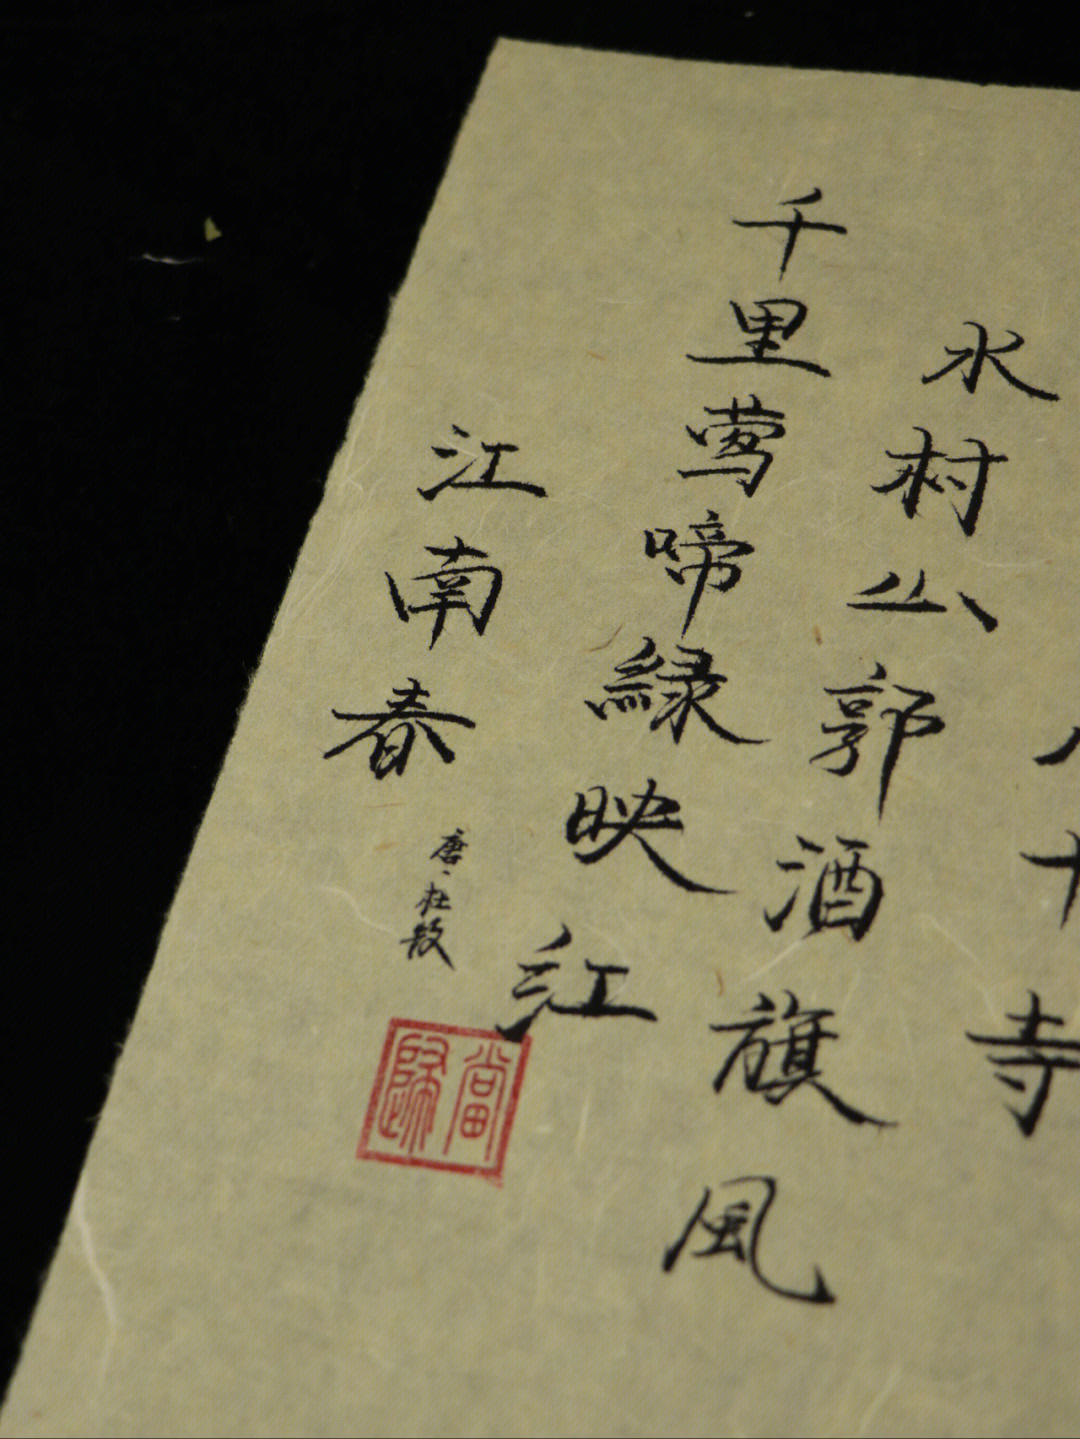 江南春
唐、杜牧
當歸
千里莺啼緑映红
水村山郭酒旗風
十寺